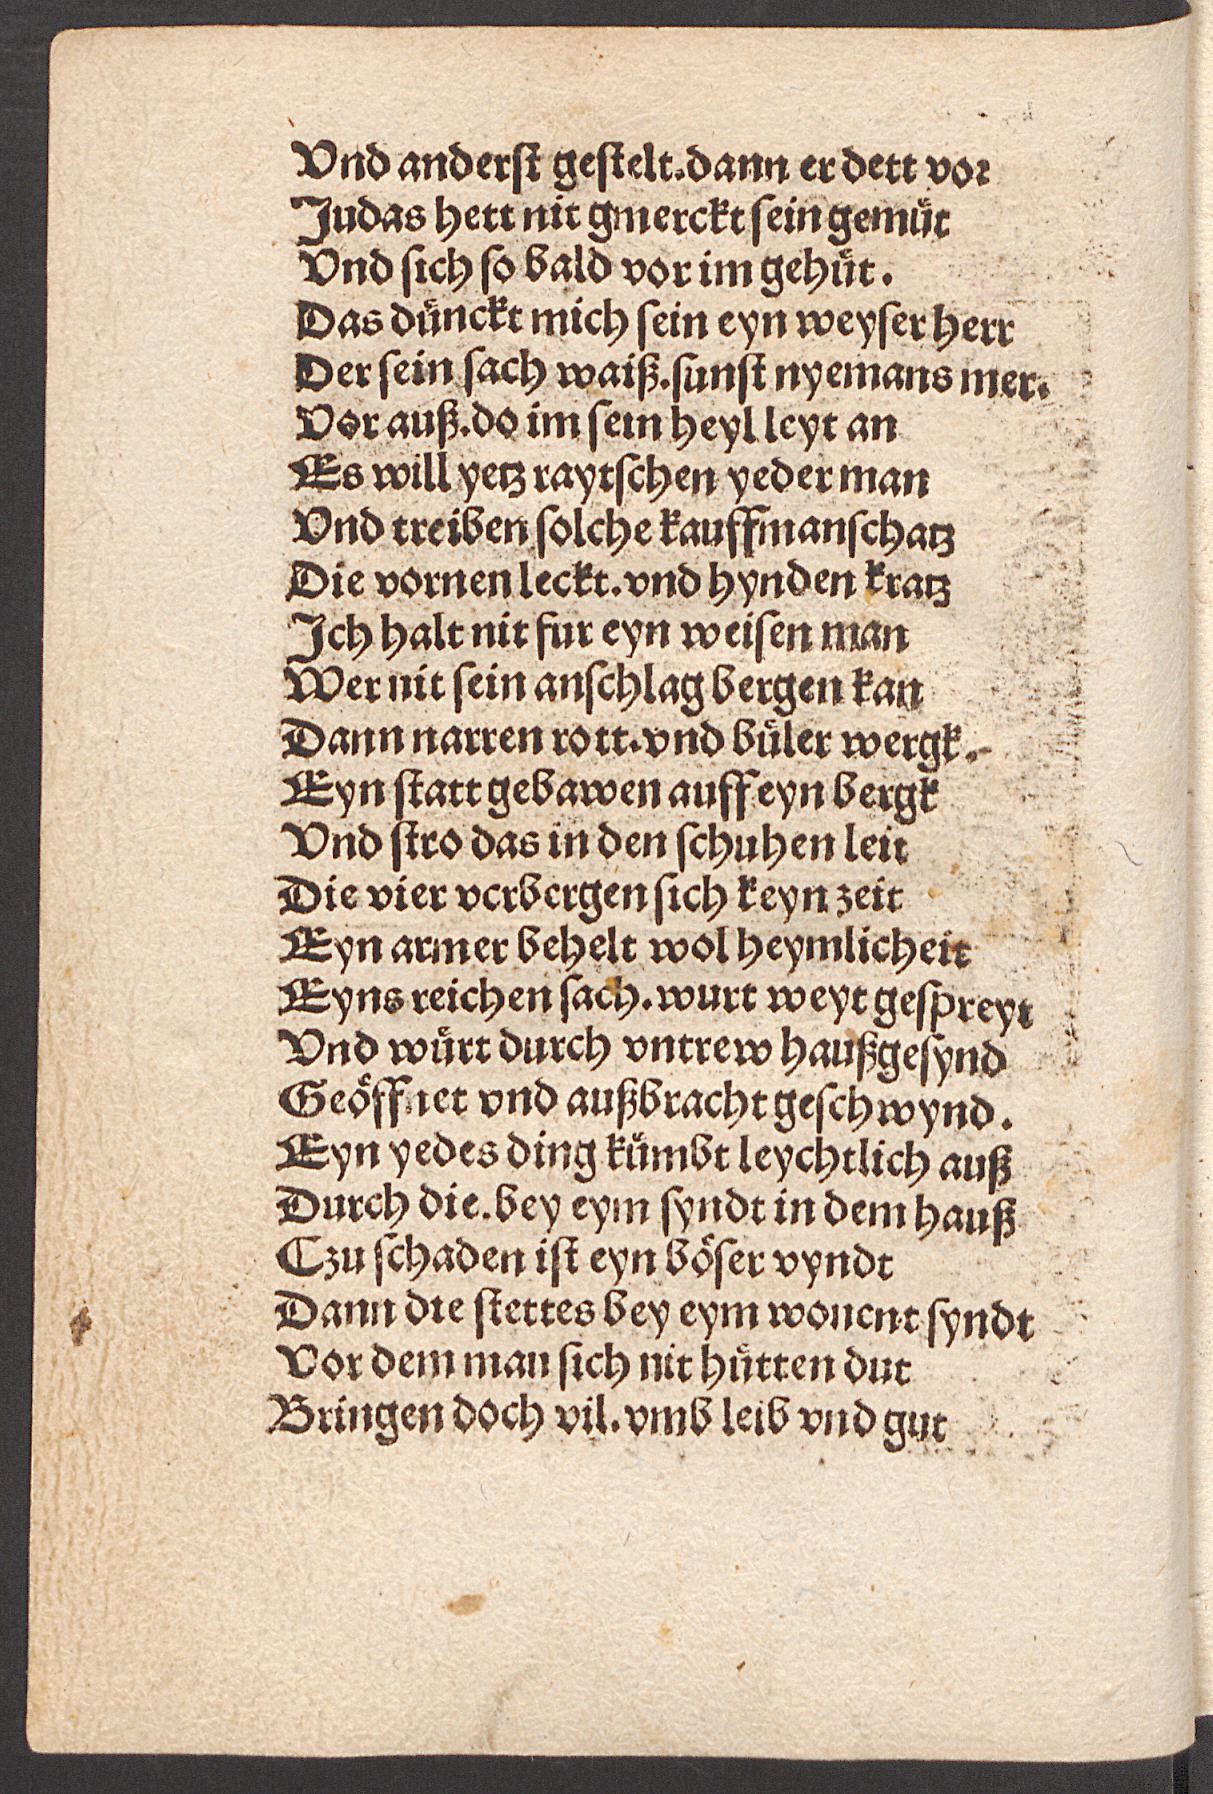 Vnd anderst gestelt.dann er dett vor
Judas hett nit gmerckt sein gemüt
Vnd sich so bald vor im gehüt.
Das dünckt mich sein eyn weyser herr
Der sein sach waiß.sunst nyemans mer.
Vor auß.do im sein heyl leyt an
Es will yetz raytschen yeder man
Vnd treiben solche kauffmanschatz
Die vornen leckt.vnd hynden kratz
Ich halt nit fur eyn weisen man
Wer nit sein anschlag bergen kan
Dann narren rott.vnd büler wergk.
Eyn statt gebawen auff eyn bergk
Vnd stro das in den schuhen leit
Die vier verbergen sich keyn zeit
Eyn armer behelt wol heymlicheit
Eyns reichen sach.wurt weyt gespreyt
Vnd würt durch vntrew haußgesynd
Geöffnet vnd außbracht geschwynd.
Eyn yedes ding kümbt leychtlich auß
Durch die.bey eym syndt in dem hauß
Czu schaden ist eyn böser vyndt
Dann die stettes bey eym wonent syndt
Vor dem man sich nit hütten dut
Bringen doch vil.vmb leib vnd gut